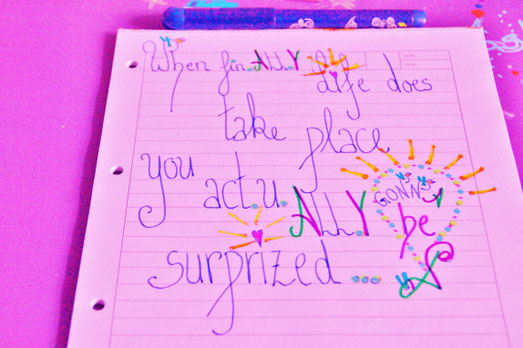 When fin.ALL.Y life does
take place
you act.u.ALL.Y GONNA
be
surprized ....